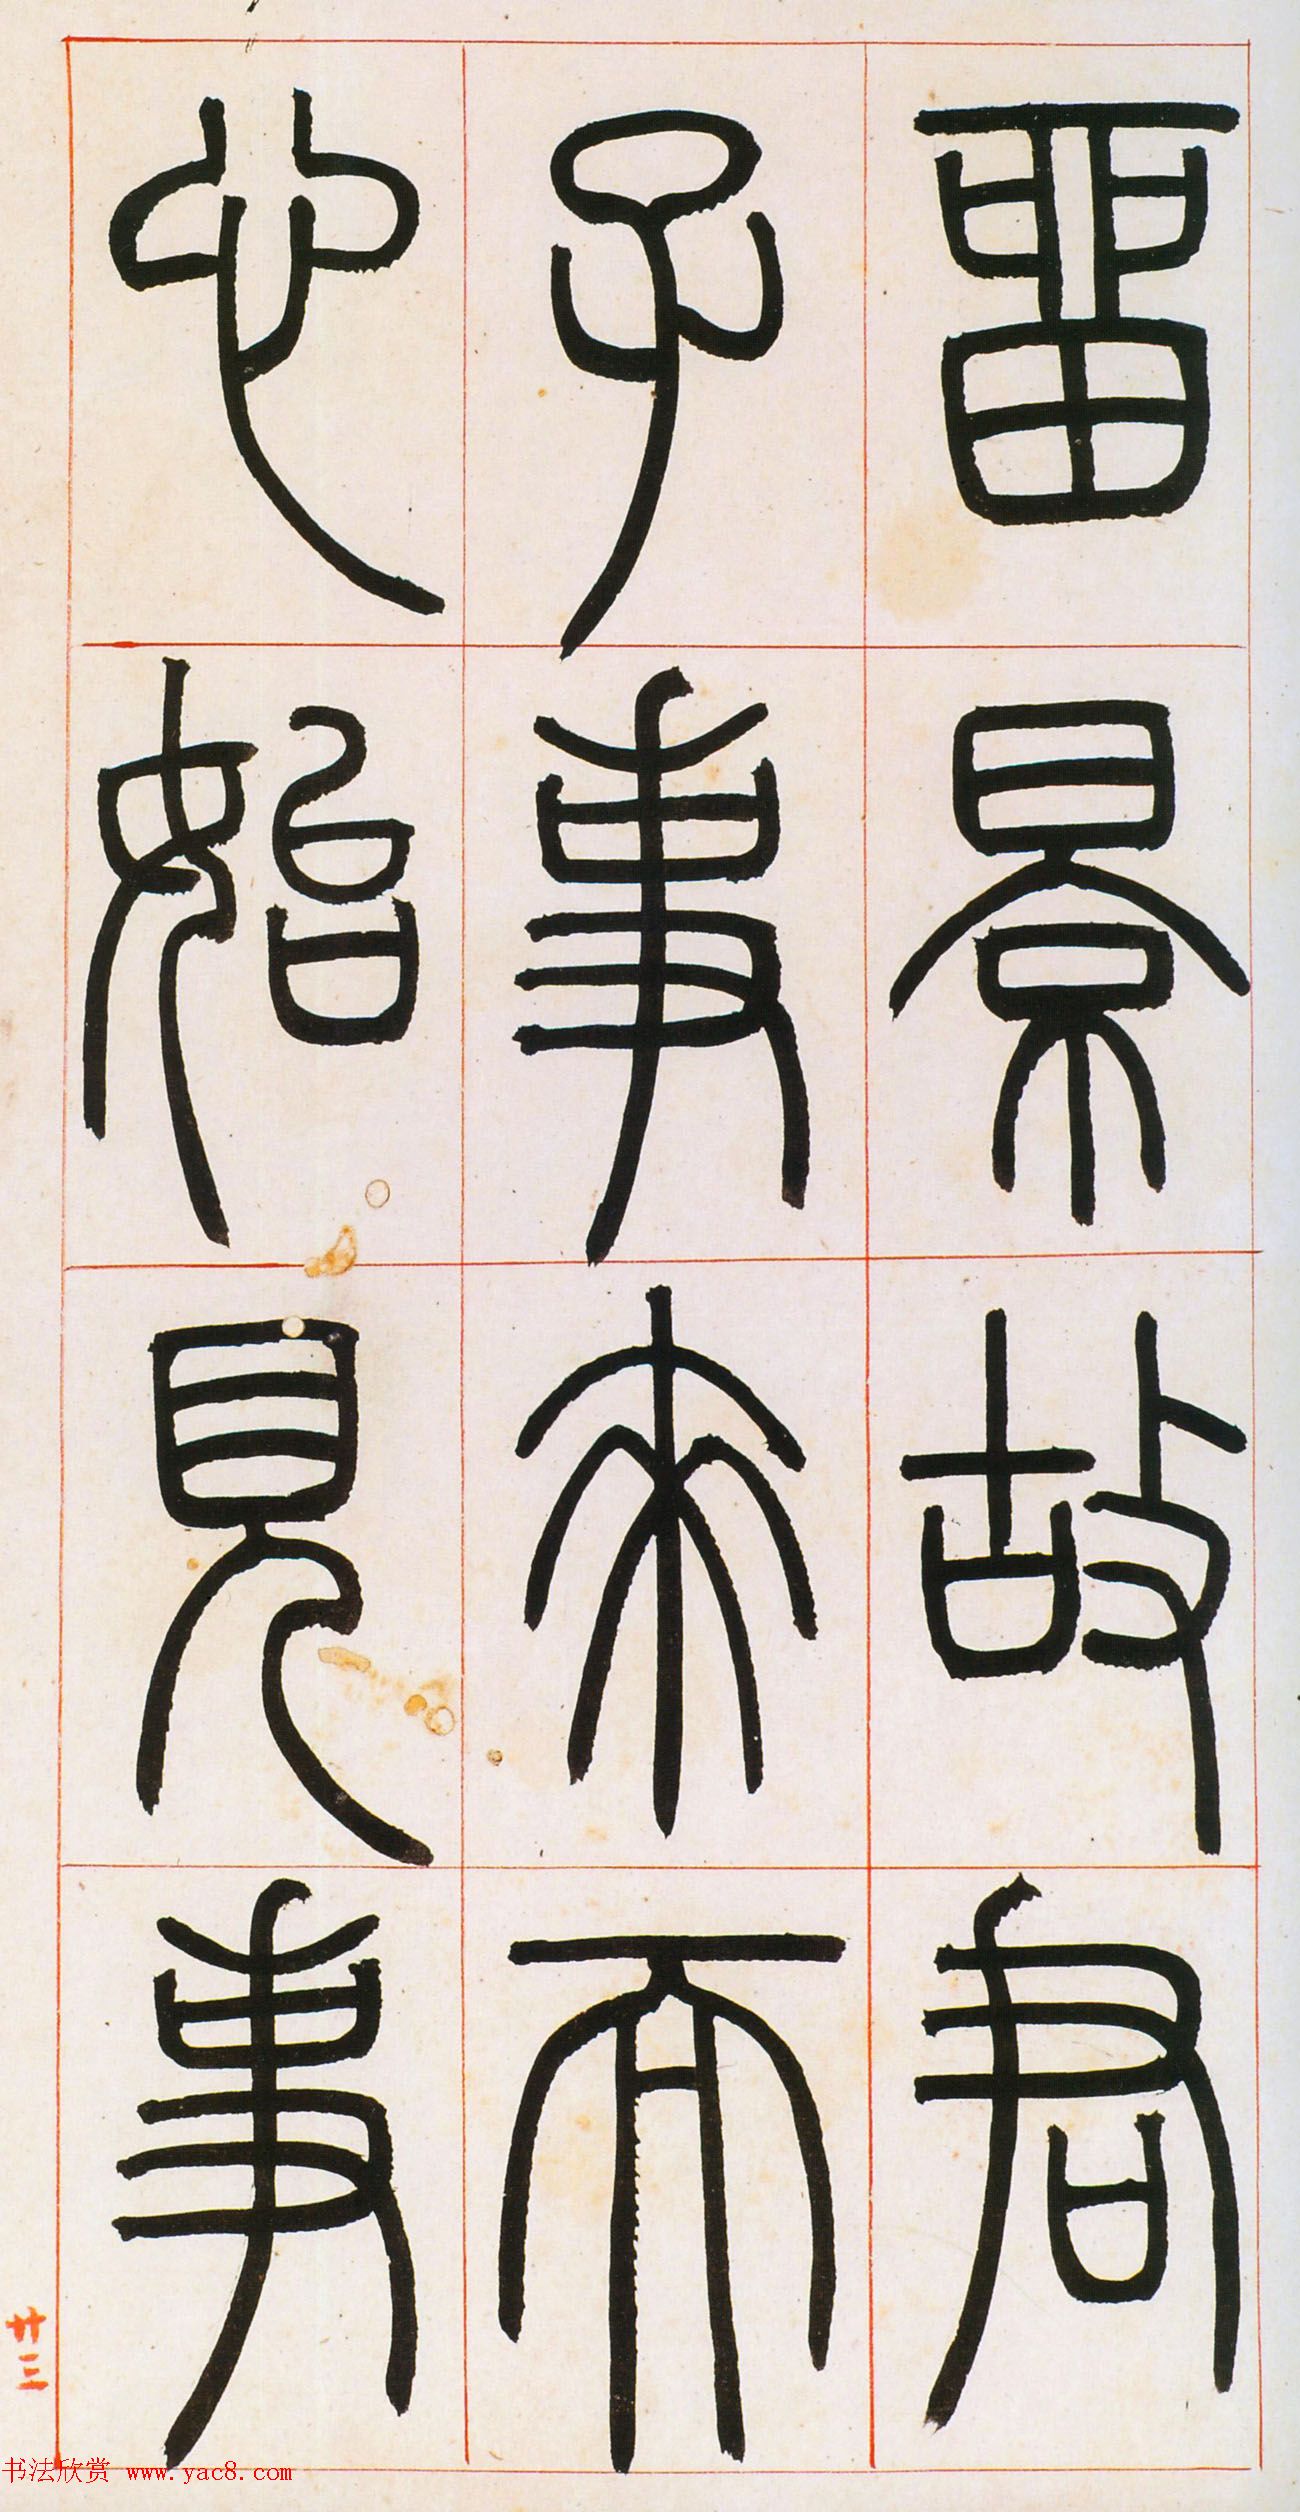 留景故君
子事來而
心始見事
廿三
书法欣赏 www.yac8.com